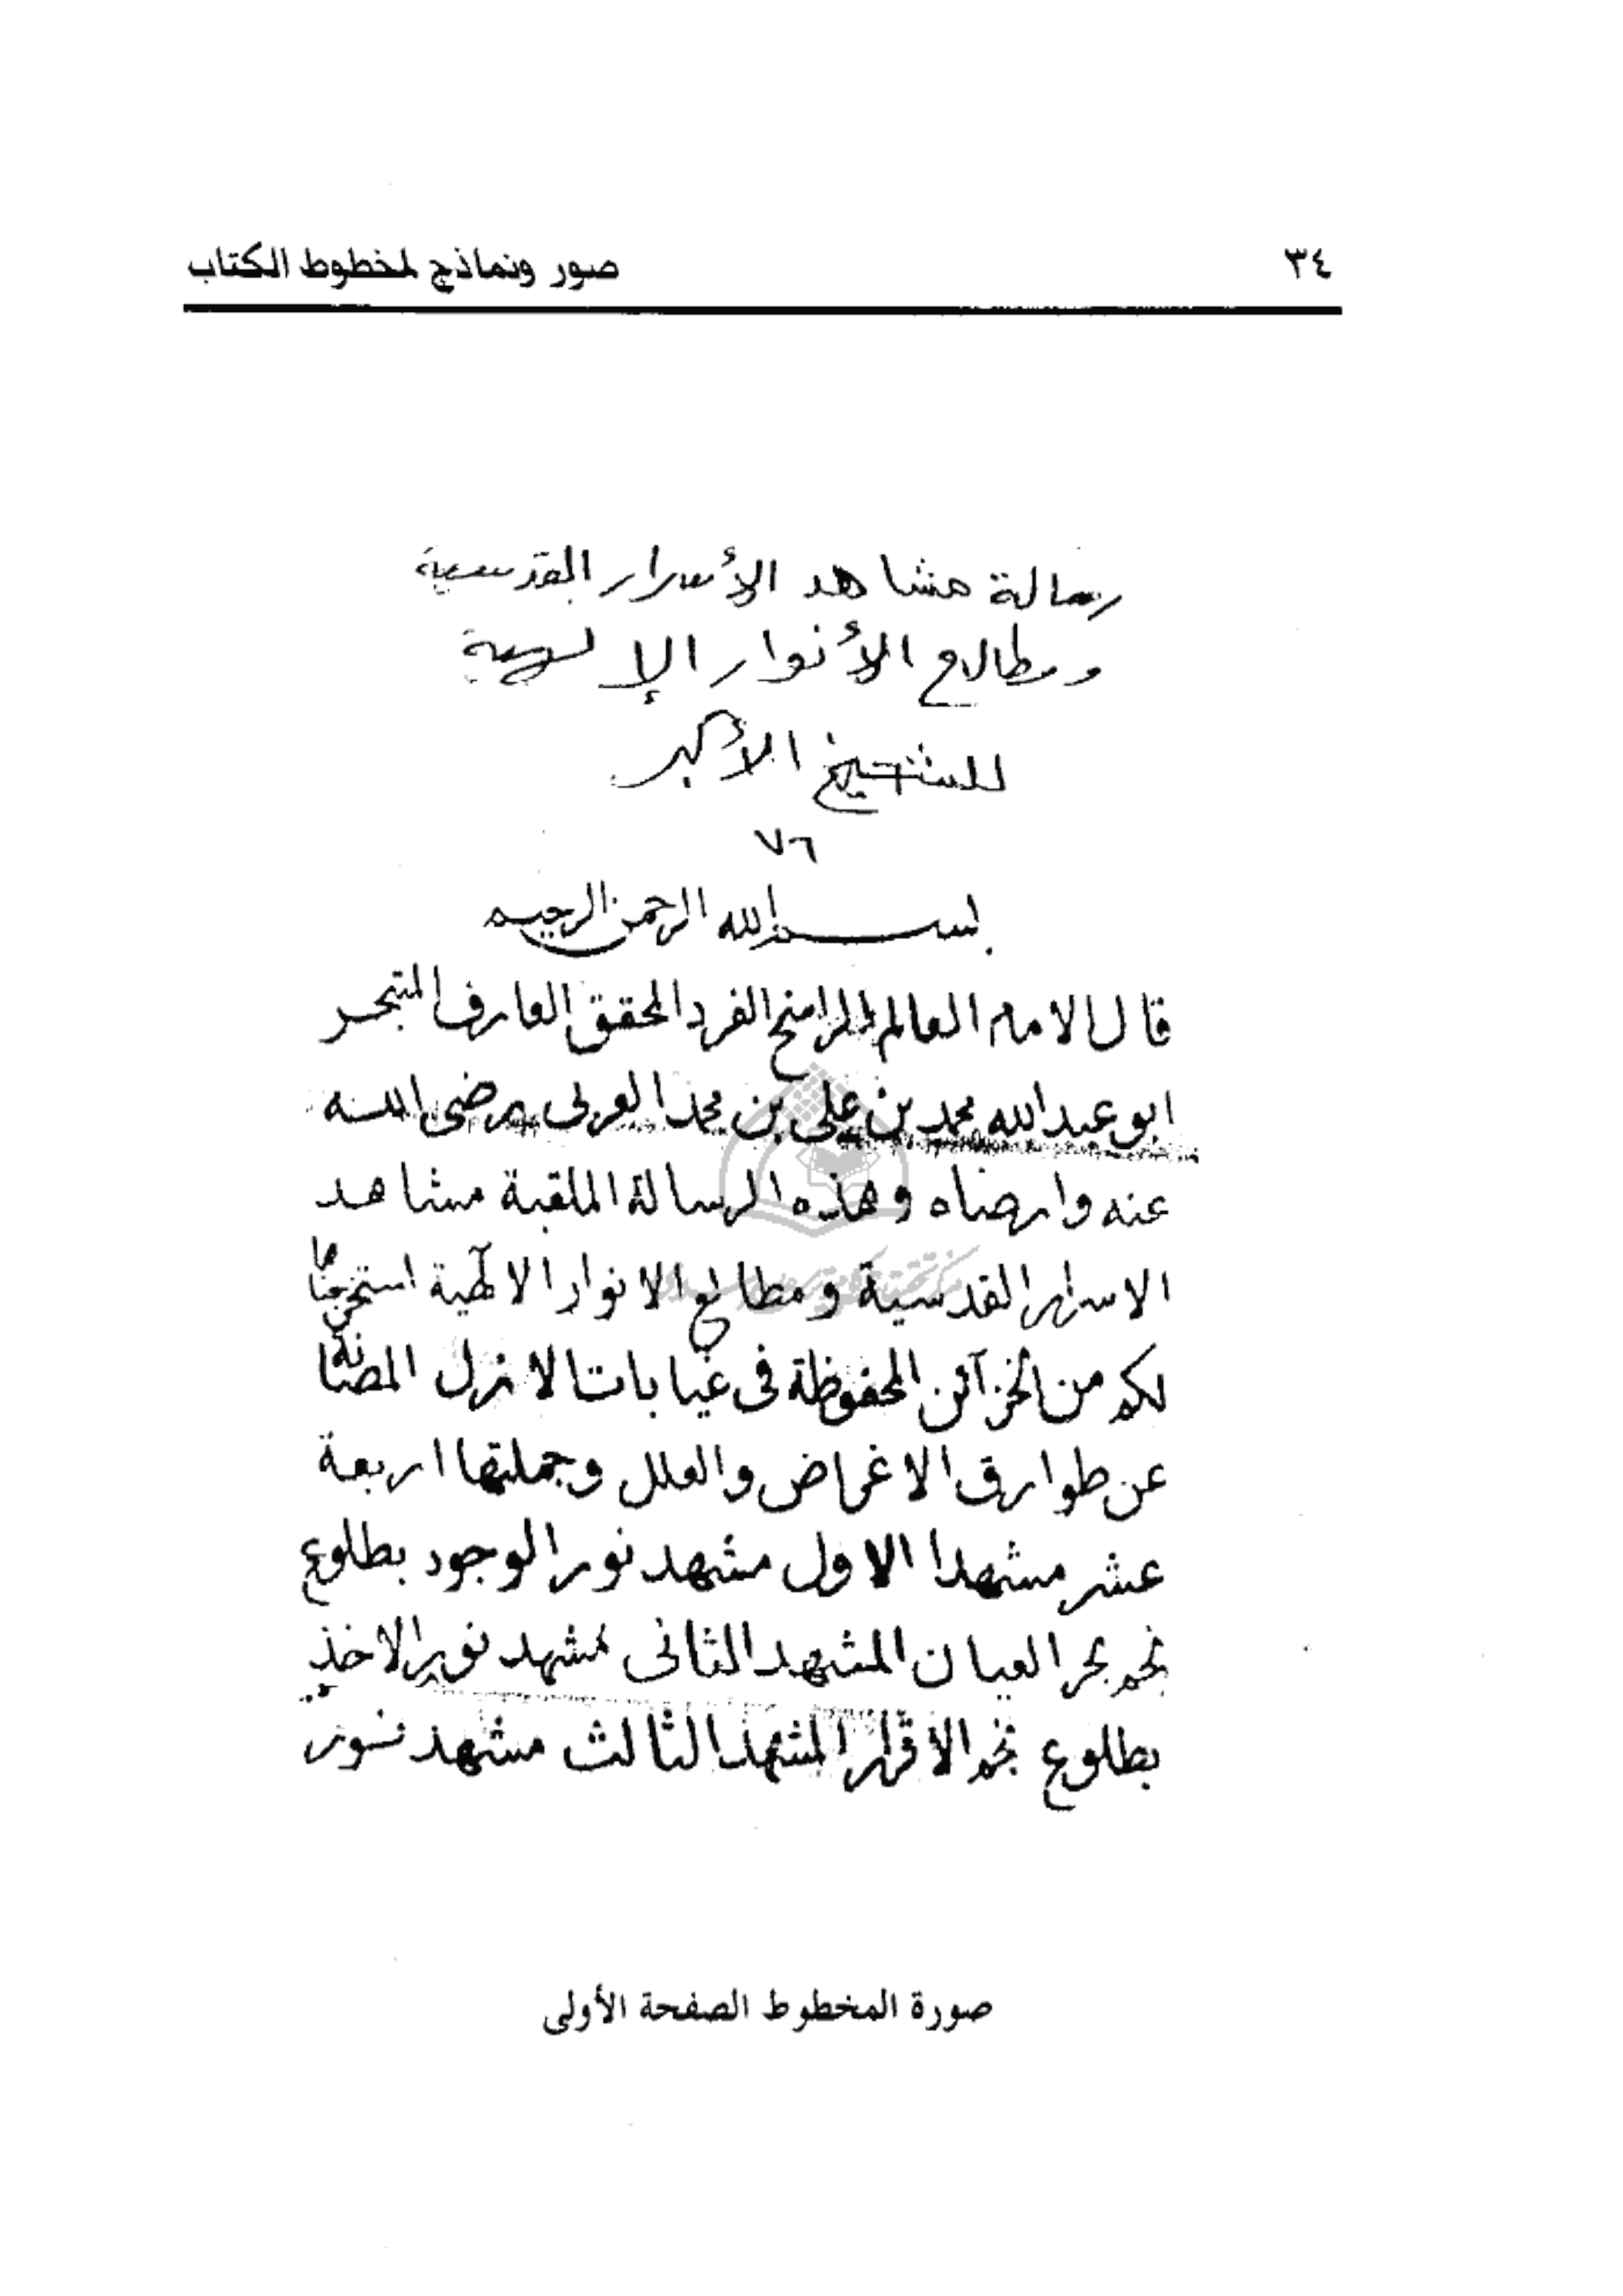 ٣٤
صور ونماذج لمخطوط الكتاب
رسالة مشاهد الأسرار القدسية
ومطالع الأنوار الإلهية
للشيخ الأكبر
٧٦
بسم الله الرحمن الرحيم
قال الامام العالم الراسخ الفرد المحقق العارف المتبحر
ابو عبد الله محمد بن علي بن محمد العربى رضى الله
عنه وارضاه وهذه الرسالة الملقبة مشاهد
الاسرار القدسية ومطالع الانوار الالهية استخرجناها
لكم من الخزآئن المحفوظة فى غيابات الازل المصانة
عن طوارق الاغراض والعلل وجملتها اربعة
عشر مشهدا الاول مشهد نور الوجود بطلوع
نجم بحر العيان المشهد الثانى مشهد نور الاخذ
بطلوع نجم الاقرار المشهد الثالث مشهد نور
صورة المخطوط الصفحة الأولى